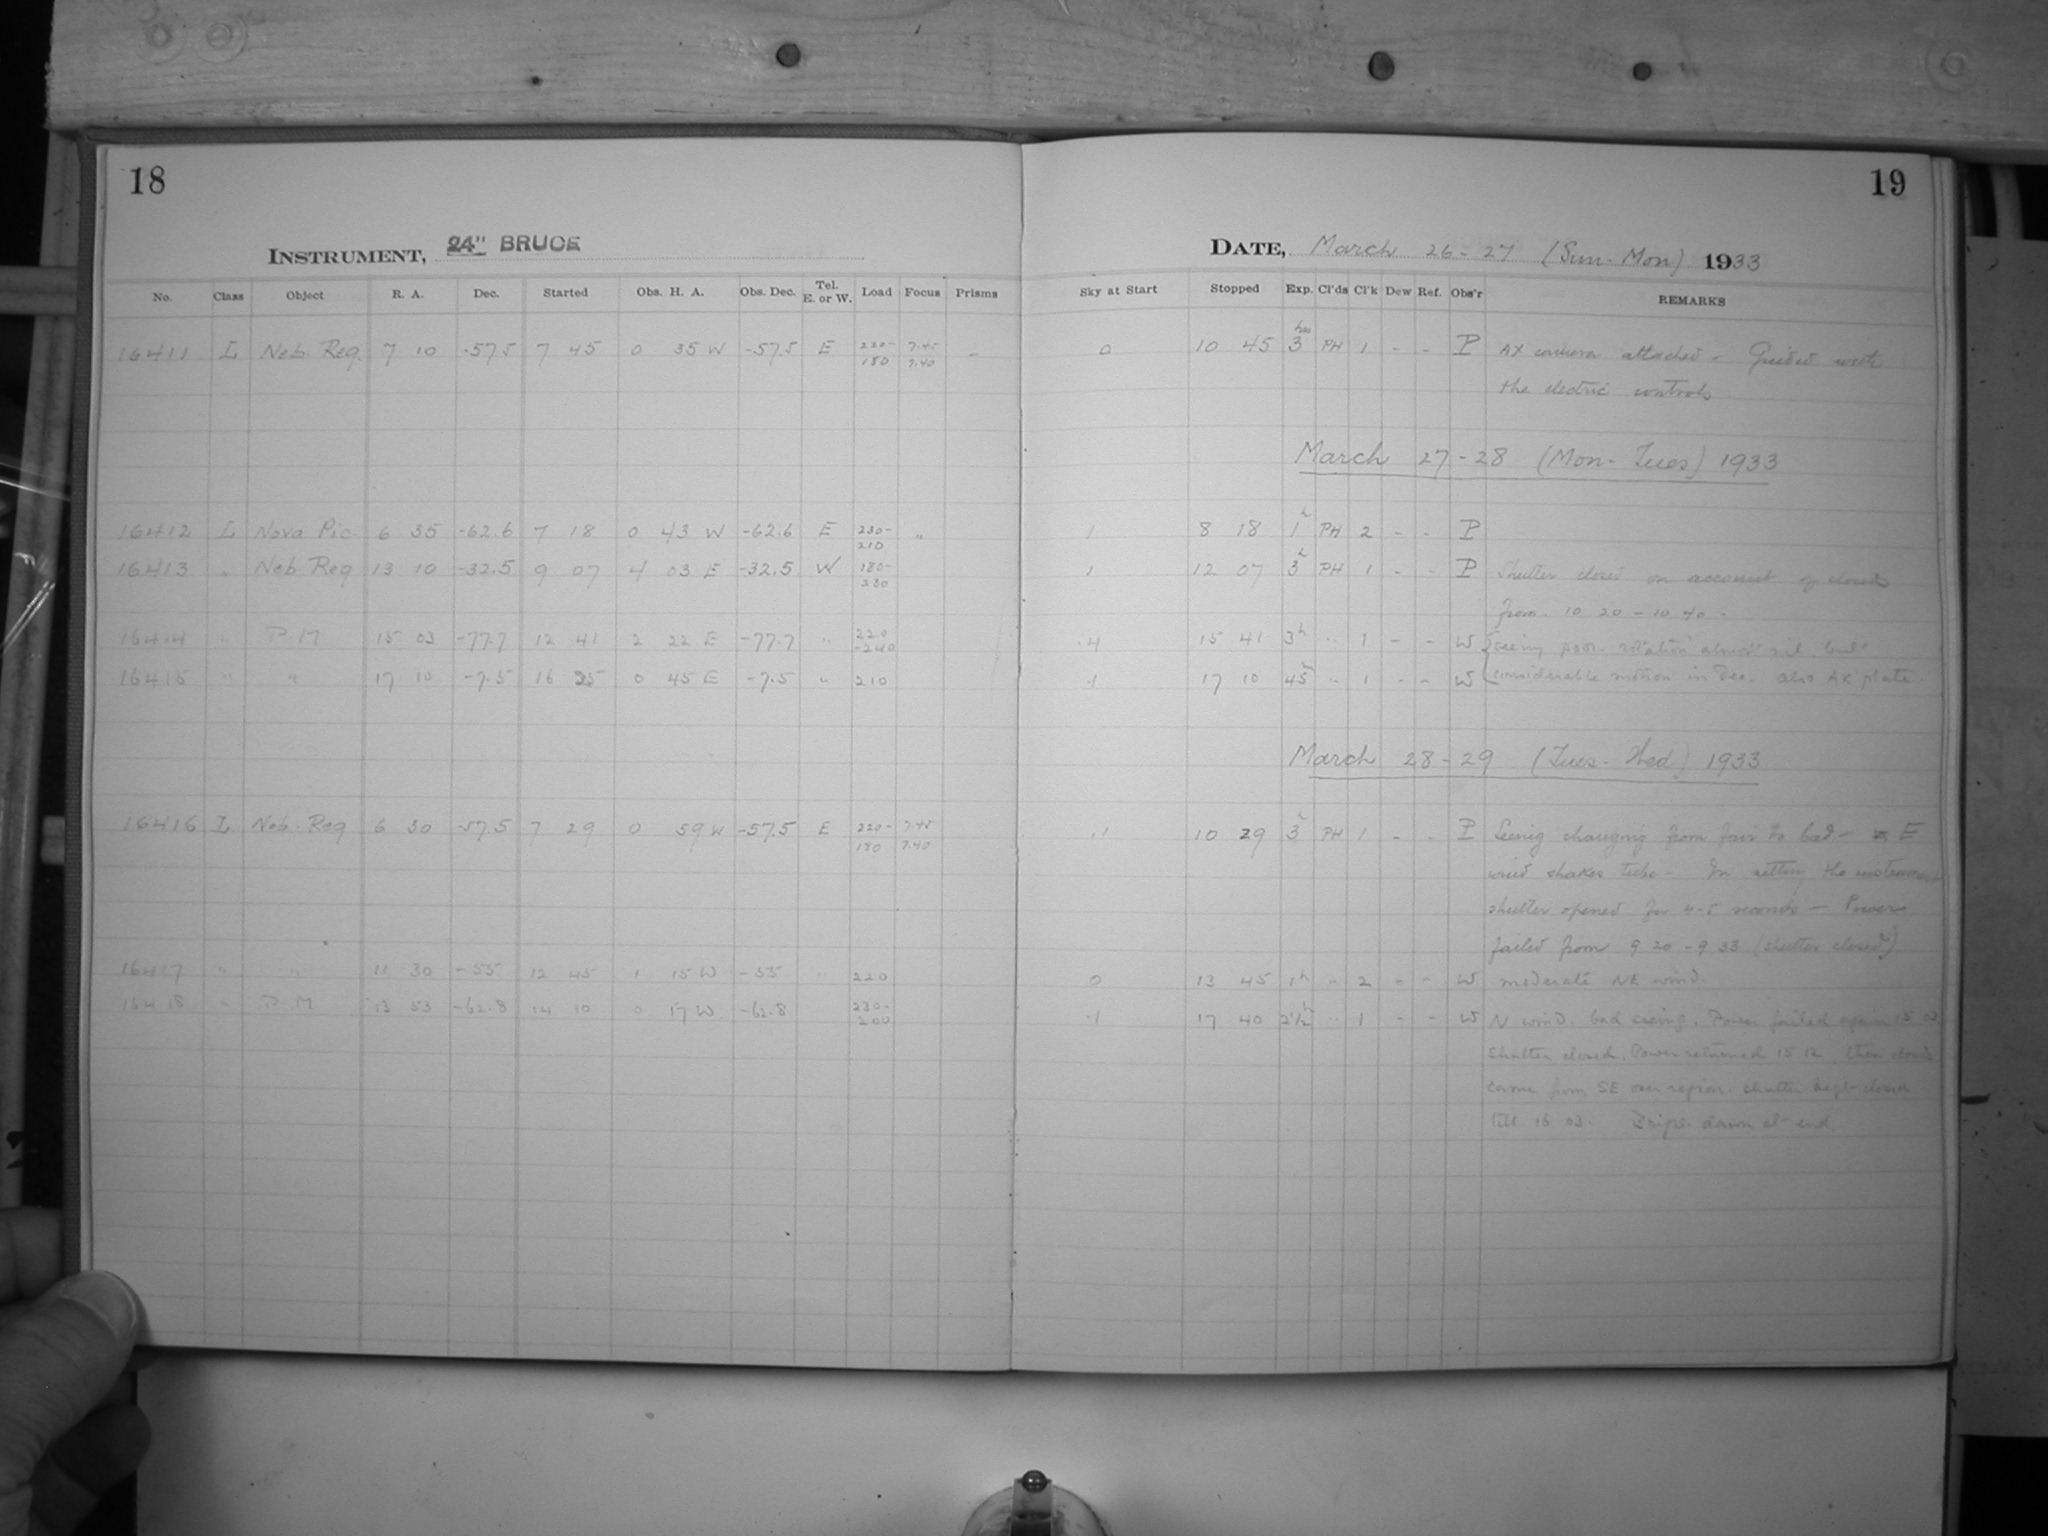 18
INSTRUMENT, 24" BRUCE
No. Class Object R. A. Dec. Started Obs. H. A. Obs. Dec. Tel. E. or W. Load Focus Prisms
16411 L Neb. Reg. 7 10 -57.5 7 45 0 35 W -57.5 E 220-180 7.45 7.40 -
16412 L Nova Pic 6 35 -62.6 7 18 0 43 W -62.6 E 230-210 "
16413 " Neb Reg 13 10 -32.5 9 07 4 03 E -32.5 W 180-230
16414 " P M 15 03 -77.7 12 41 2 22 E -77.7 " 220-240
16415 " " 17 10 -7.5 16 25 0 45 E -7.5 " 210
16416 L Neb. Reg 6 30 -57.5 7 29 0 59 W -57.5 E 220-180 7.45 7.40
16417 " " 11 30 -55 12 45 1 15 W -55 " 220
16418 " P M 13 53 -62.8 14 10 0 17 W -62.8 230-200
19
DATE, March 26-27 (Sun-Mon) 1933
Sky at Start Stopped Exp. Cl'ds Cl'k Dew Ref. Obs'r REMARKS
0 10 45 3 hrs PH 1 - - P AX camera attached - Guided with
the electric controls
March 27-28 (Mon-Tues) 1933
1 8 18 1h PH 2 - - P
1 12 07 3h PH 1 - - P Shutter closed on account of clouds
from 10 20 - 10 40 -
.4 15 41 3h " 1 - - W Seeing poor. rotation almost nil but
.1 17 10 45m " 1 - - W considerable motion in Dec. also AX plate.
March 28-29 (Tues-Wed) 1933
.1 10 29 3h PH 1 - - P Seeing changing from fair to bad - E
wind shakes tube - In setting the instrument
shutter opened for 4-5 seconds - Power
failed from 9 20 - 9 33 (shutter closed)
0 13 45 1h " 2 - - W moderate NE wind.
.1 17 40 2½h " 1 - - W N wind. bad seeing. Power failed again 15 03
Shutter closed. Power returned 15 12, then clouds
came from SE over region. shutter kept closed
till 16 03. Bright dawn at end.